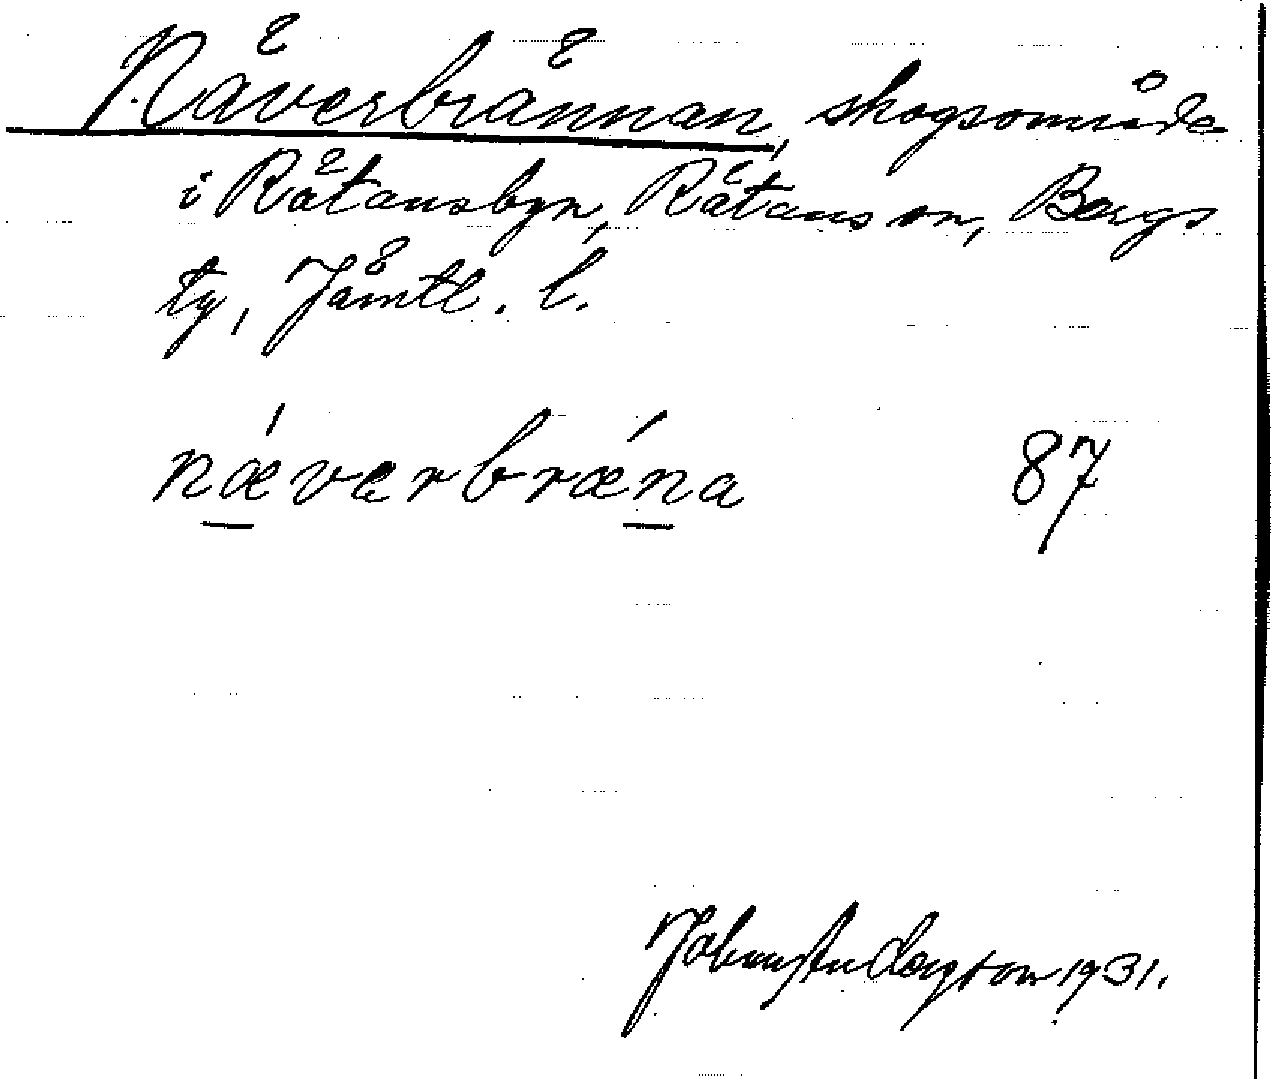 Näverbrännan, skogsområde
i Rätansbyn, Rätans sn, Bergs
tg, Jämtl. l.
næverbræna 87
1931.